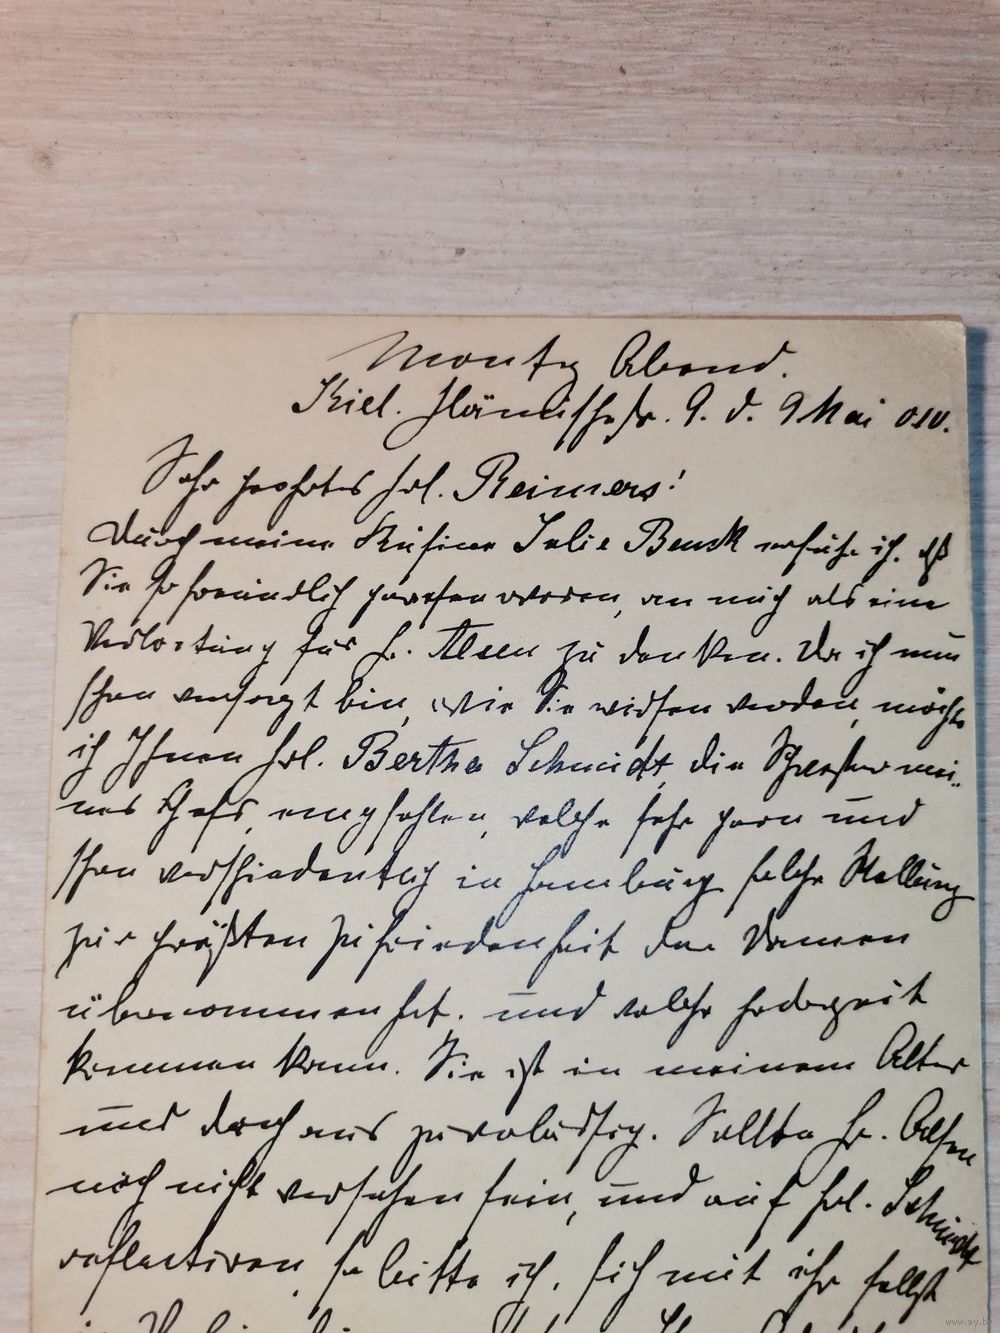 Montag Abend.
Kiel. Hänischstr. 9. d. 9 Mai 010.
Sehr geehrtes Frl. Reimers!
Durch meine Kusine Julie Benck erfuhr ich, daß
Sie so freundlich gewesen waren, an mich als eine
Vertretung für Fr. Alsen zu denken. Da ich nun
schon versorgt bin, wie Sie wissen werden, möchte
ich Ihnen Frl. Bertha Schmidt, die Schwester mei-
nes Chefs, empfehlen, welche sehr gern und
schon verschiedentlich in Hamburg solche Stellung
zur größten Zufriedenheit der Damen
übernommen hat. und welche jederzeit
kommen kann. Sie ist in meinem Alter
und durchaus zuverlässig. Sollte Fr. Alsen
noch nicht versehen sein, und auf Frl. Schmidt
reflectiren, so bitte ich, sich mit ihr selbst
in
www.ay.by